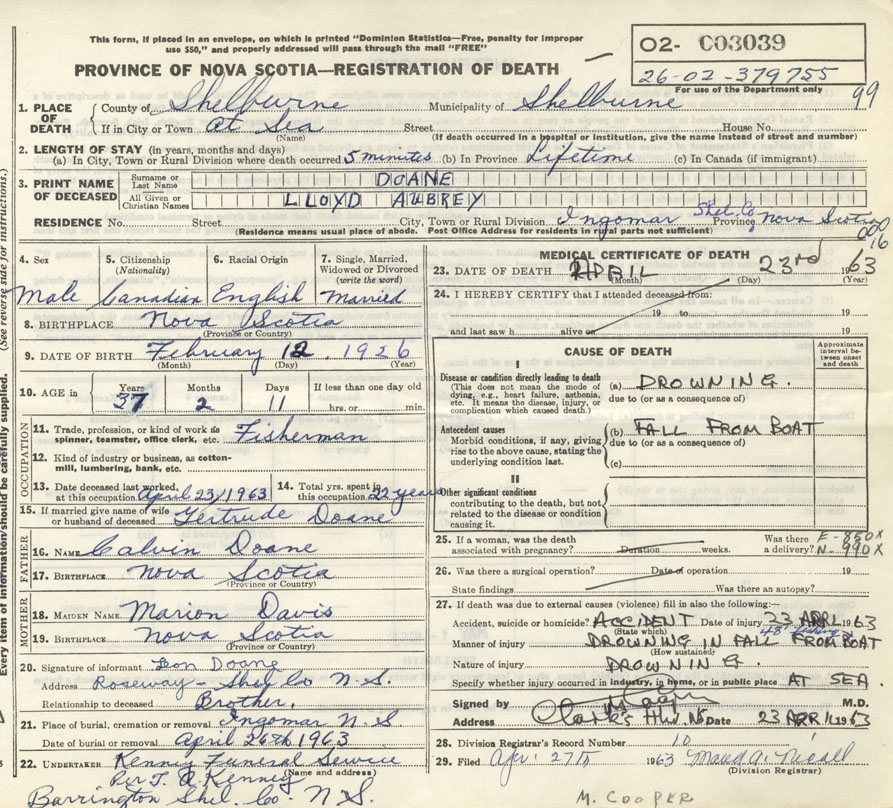 This form, if placed in an envelope, on which is printed "Dominion Statistics—Free, penalty for improper
use $50," and properly addressed will pass through the mail "FREE"
PROVINCE OF NOVA SCOTIA—REGISTRATION OF DEATH
02- C03039
26-02-379755
For use of the Department only
99
1. PLACE OF DEATH
County of Shelburne Municipality of Shelburne
If in City or Town at Sea Street House No.
(Name) (If death occurred in a hospital or institution, give the name instead of street and number)
2. LENGTH OF STAY (in years, months and days)
(a) In City, Town or Rural Division where death occurred 5 minutes (b) In Province Lifetime (c) In Canada (if immigrant)
3. PRINT NAME OF DECEASED
Surname or Last Name DOANE
All Given or Christian Names LLOYD AUBREY
RESIDENCE No. Street City, Town or Rural Division Ingomar Shel. Co Province Nova Scotia
(Residence means usual place of abode. Post Office Address for residents in rural parts not sufficient)
000
16
4. Sex 5. Citizenship (Nationality) 6. Racial Origin 7. Single, Married, Widowed or Divorced (write the word)
Male Canadian English Married
8. BIRTHPLACE Nova Scotia
(Province or Country)
9. DATE OF BIRTH February 12, 1926
(Month) (Day) (Year)
10. AGE in Years Months Days If less than one day old
37 2 11 hrs. or min.
OCCUPATION
11. Trade, profession, or kind of work as spinner, teamster, office clerk, etc. Fisherman
12. Kind of industry or business, as cotton-mill, lumbering, bank, etc.
13. Date deceased last worked at this occupation April 23/1963 14. Total yrs. spent in this occupation 22 years
15. If married give name of wife or husband of deceased Gertrude Doane
FATHER
16. NAME Calvin Doane
17. BIRTHPLACE Nova Scotia
(Province or Country)
MOTHER
18. MAIDEN NAME Marion Davis
19. BIRTHPLACE Nova Scotia
(Province or Country)
20. Signature of informant Leon Doane
Address Roseway - Shel Co N.S.
Relationship to deceased Brother.
21. Place of burial, cremation or removal Ingomar N.S
Date of burial or removal April 26th 1963
22. UNDERTAKER Kenney Funeral Service
(Name and address)
Per Kenney
Barrington Shel. Co. N.S.
MEDICAL CERTIFICATE OF DEATH
23. DATE OF DEATH APRIL 23rd 1963
(Month) (Day) (Year)
24. I HEREBY CERTIFY that I attended deceased from:
19 to 19
and last saw h alive on 19
CAUSE OF DEATH
Approximate interval between onset and death
I
Disease or condition directly leading to death
(This does not mean the mode of dying, e.g., heart failure, asthenia, etc. It means the disease, injury, or complication which caused death.)
(a) DROWNING.
due to (or as a consequence of)
Antecedent causes
Morbid conditions, if any, giving rise to the above cause, stating the underlying condition last.
(b) FALL FROM BOAT
due to (or as a consequence of)
(c)
II
Other significant conditions
contributing to the death, but not related to the disease or condition causing it.
25. If a woman, was the death associated with pregnancy? Duration weeks. Was there a delivery?
E-850X
N-990X
26. Was there a surgical operation? Date of operation 19
State findings Was there an autopsy?
27. If death was due to external causes (violence) fill in also the following:—
Accident, suicide or homicide? ACCIDENT Date of injury 23 APRL 1963
(State which)
Manner of injury DROWNING IN FALL FROM BOAT
(How sustained)
Nature of injury DROWNING.
Specify whether injury occurred in industry, in home, or in public place AT SEA.
Signed by M.D.
Address Clark's Hbr. NS Date 23 APRIL 1963
28. Division Registrar's Record Number 10
29. Filed Apr. 27th 1963 Maud A. Nicoll
(Division Registrar)
M. COOPER
(See reverse side for instructions.)
Every item of information should be carefully supplied.